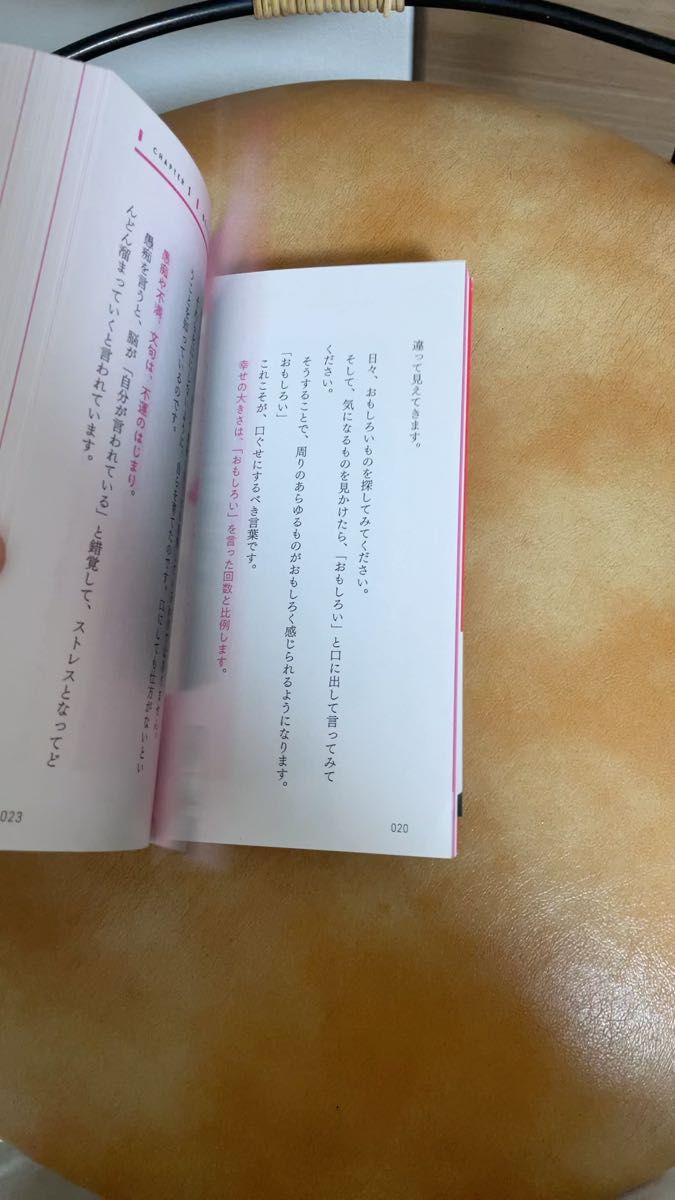 違って見えてきます。
日々、おもしろいものを探してみてください。
そして、気になるものを見かけたら、「おもしろい」と口に出して言ってみて
ください。
そうすることで、周りのあらゆるものがおもしろく感じられるようになります。
「おもしろい」
これこそが、口ぐせにするべき言葉です。
幸せの大きさは、「おもしろい」を言った回数と比例します。
020
CHAPTER 1
うことを知っているのです。
愚痴や不満、文句は、不運のはじまり。
愚痴を言うと、脳が「自分が言われている」と錯覚して、ストレスとなってど
んどん溜まっていくと言われています。
023